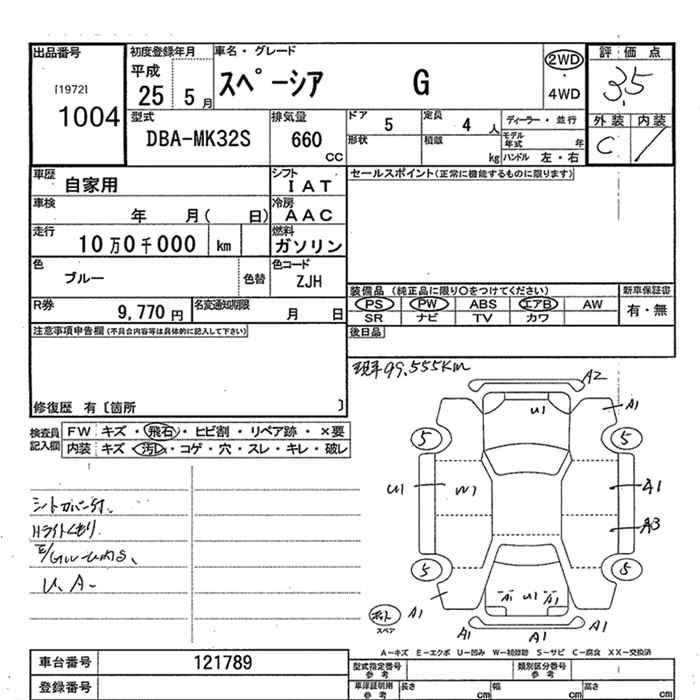 出品番号 初度登録年月 車名・グレード 評価点
[1972] 平成 スペーシア G 2WD ・ 4WD 3.5
1004 25 5月
型式 排気量 ドア 5 定員 4人 ディーラー・並行 外装 内装
DBA-MK32S 660 CC 形状 積載 kg モデル年式 年 C
ハンドル 左・右
車歴 自家用 シフト IAT セールスポイント(正常に機能するものに限ります)
車検 年 月( 日) 冷房 AAC
走行 10万0千000 km 燃料 ガソリン
色 ブルー 色替 色コード ZJH
装備品 (純正品に限り○をつけてください) 新車保証書
PS PW ABS エアB AW 有・無
SR ナビ TV カワ
R券 9,770円 名変通知期限 月 日
後日品
注意事項申告欄(不具合内容等は具体的に記入して下さい)
現車99,555km
修復歴 有〔箇所 〕
検査員記入欄 FW キズ・飛石・ヒビ割・リペア跡・×要
内装 キズ・汚れ・コゲ・穴・スレ・キレ・破レ
A2
U1 A1
5 5
U1 W1 A1
A3
Hライトくもり
U、A-
5 5
A1 U1 A1
A1 A1
スペア A1 A1
A-キズ E-エクボ U-凹み W-補修跡 S-サビ C-腐食 XX-交換済
車台番号 121789 型式指定番号 参考 類別区分番号 参考
登録番号 車庫証明用 参考 長さ cm 幅 cm 高さ cm